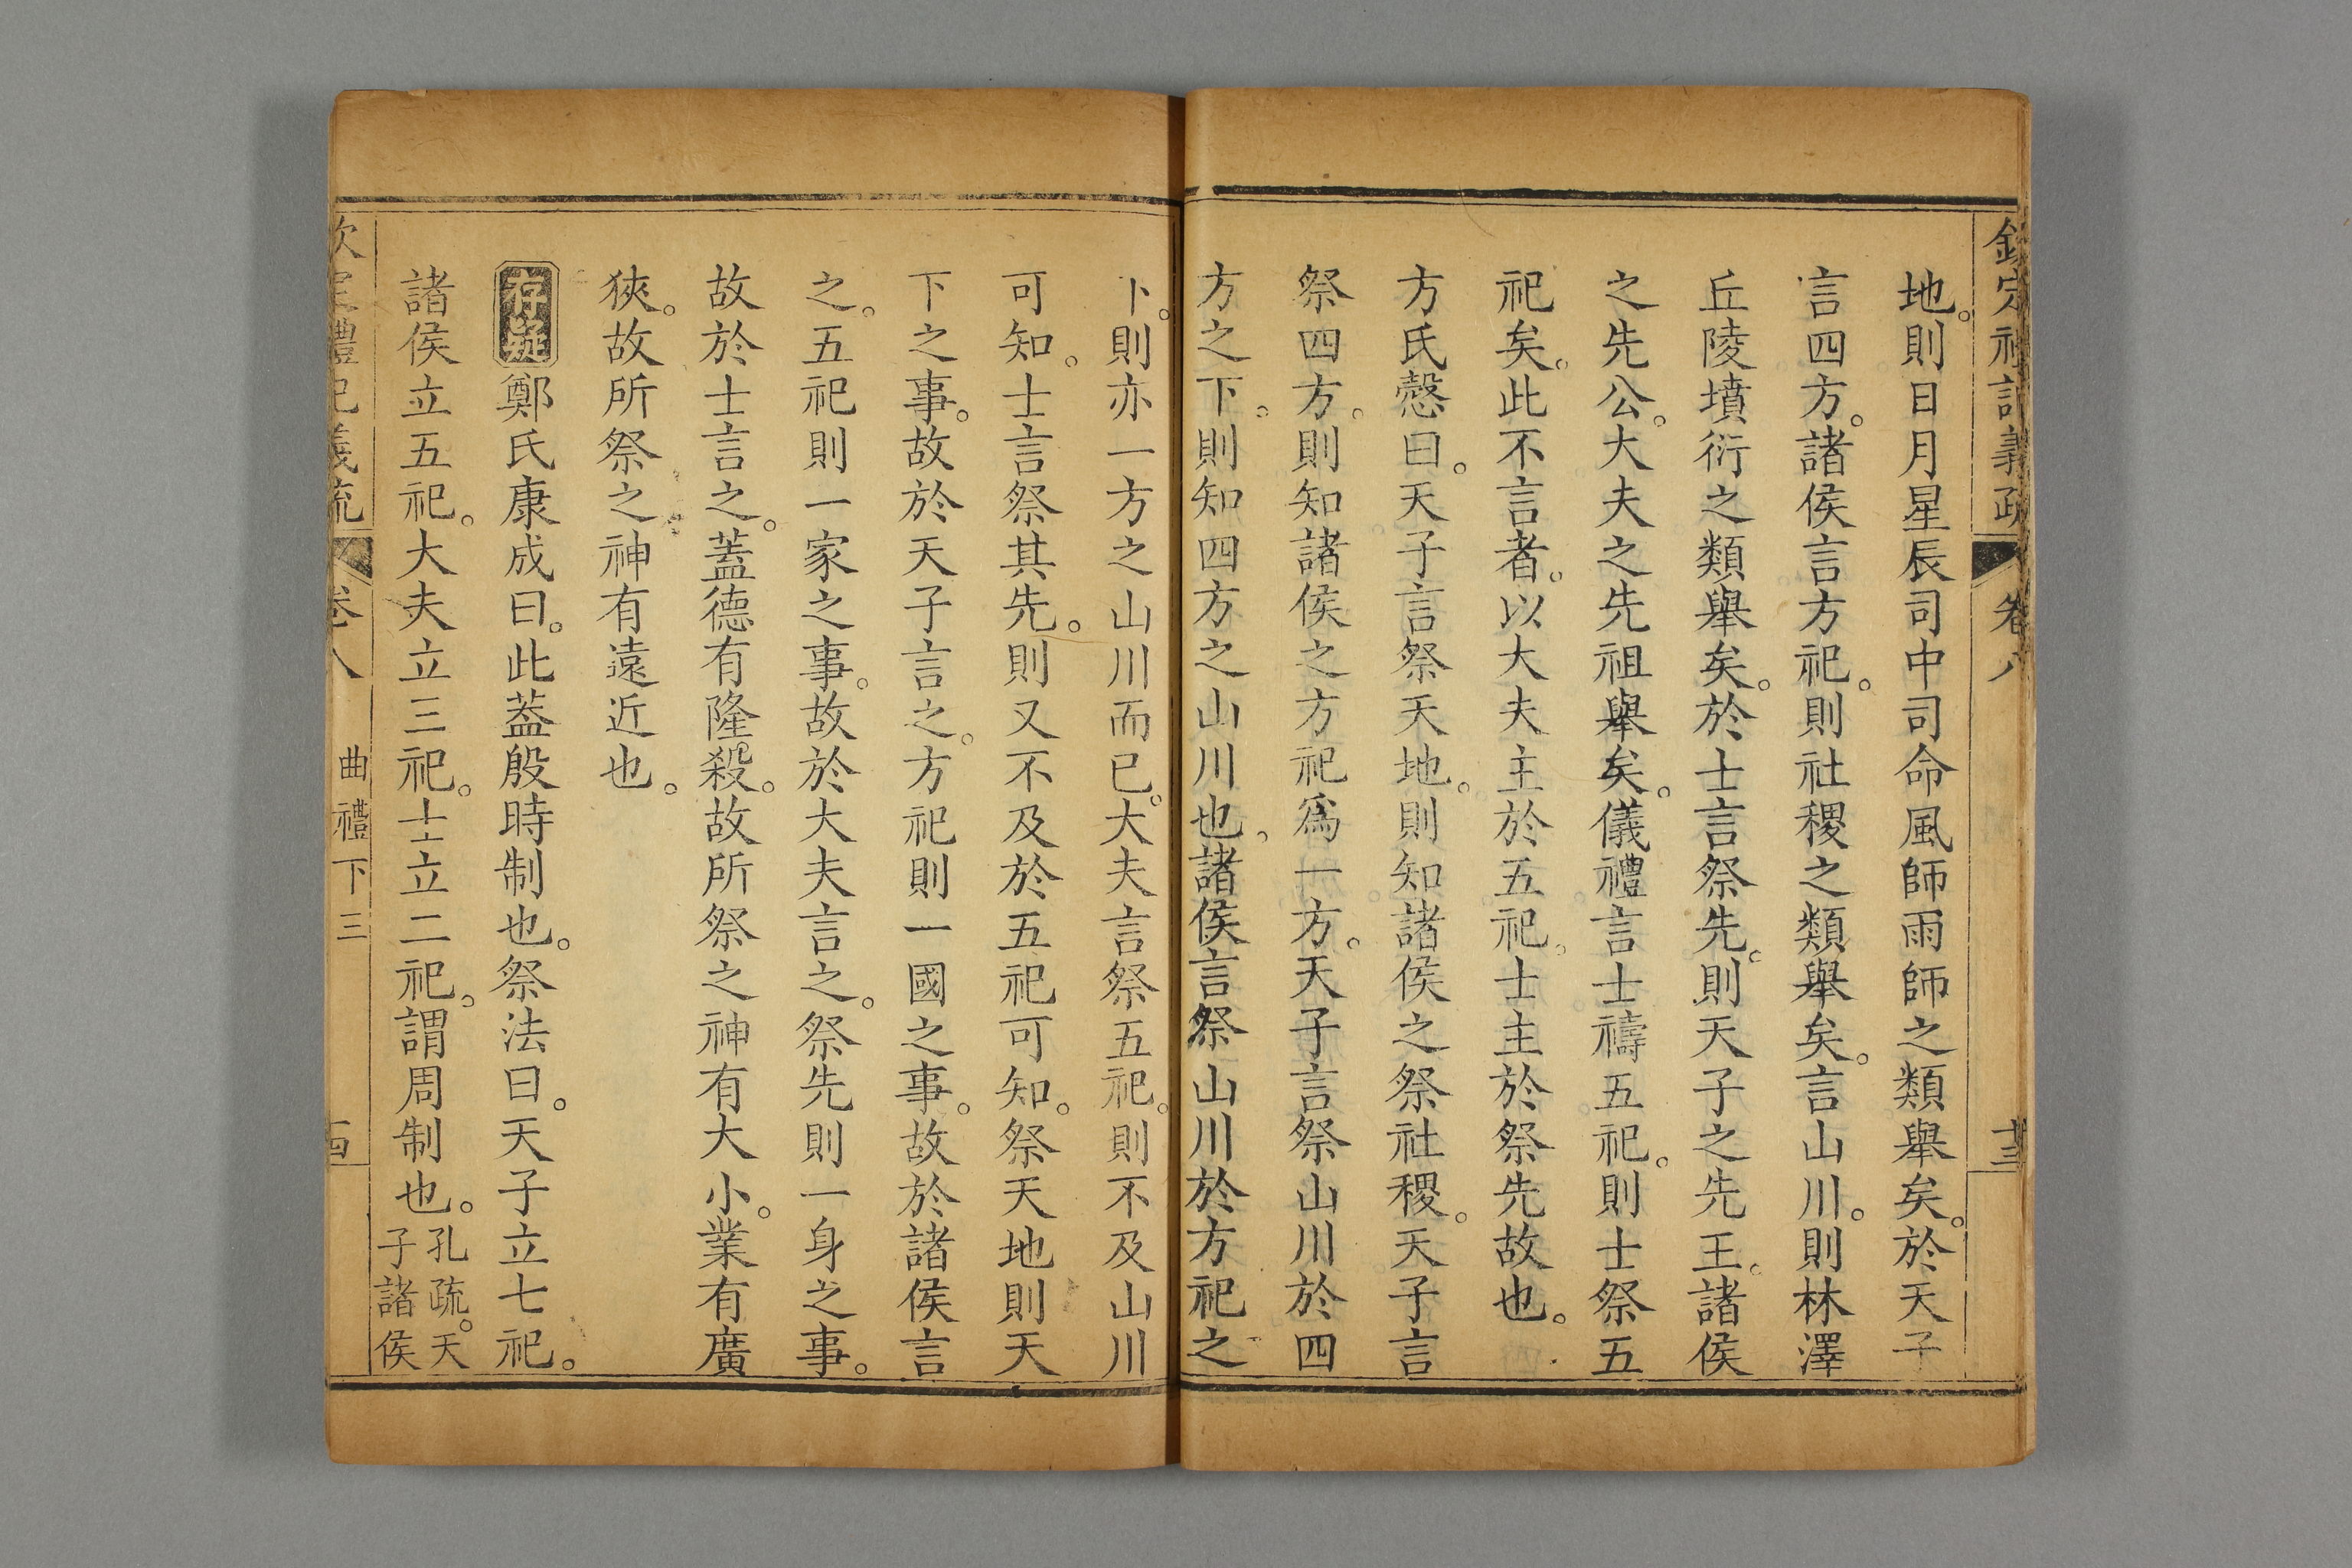 欽定禮記義疏 卷八 十三
地。則日月星辰司中司命風師雨師之類舉矣。於天子
言四方。諸侯言方祀。則社稷之類舉矣。言山川。則林澤
丘陵墳衍之類舉矣。於士言祭先。則天子之先王。諸侯
之先公。大夫之先祖舉矣。儀禮言士禱五祀。則士祭五
祀矣。此不言者。以大夫主於五祀。士主於祭先故也。
方氏慤曰。天子言祭天地。則知諸侯之祭社稷。天子言
祭四方。則知諸侯之方祀爲一方。天子言祭山川於四
方之下。則知四方之山川也。諸侯言祭山川於方祀之
下。則亦一方之山川而已。大夫言祭五祀。則不及山川
可知。士言祭其先。則又不及於五祀可知。祭天地則天
下之事。故於天子言之。方祀則一國之事。故於諸侯言
之。五祀則一家之事。故於大夫言之。祭先則一身之事。
故於士言之。蓋德有隆殺。故所祭之神有大小。業有廣
狹。故所祭之神有遠近也。
存疑 鄭氏康成曰。此蓋殷時制也。祭法曰。天子立七祀。
諸侯立五祀。大夫立三祀。士立二祀。謂周制也。孔疏。天
子諸侯
欽定禮記義疏 卷八 曲禮下三